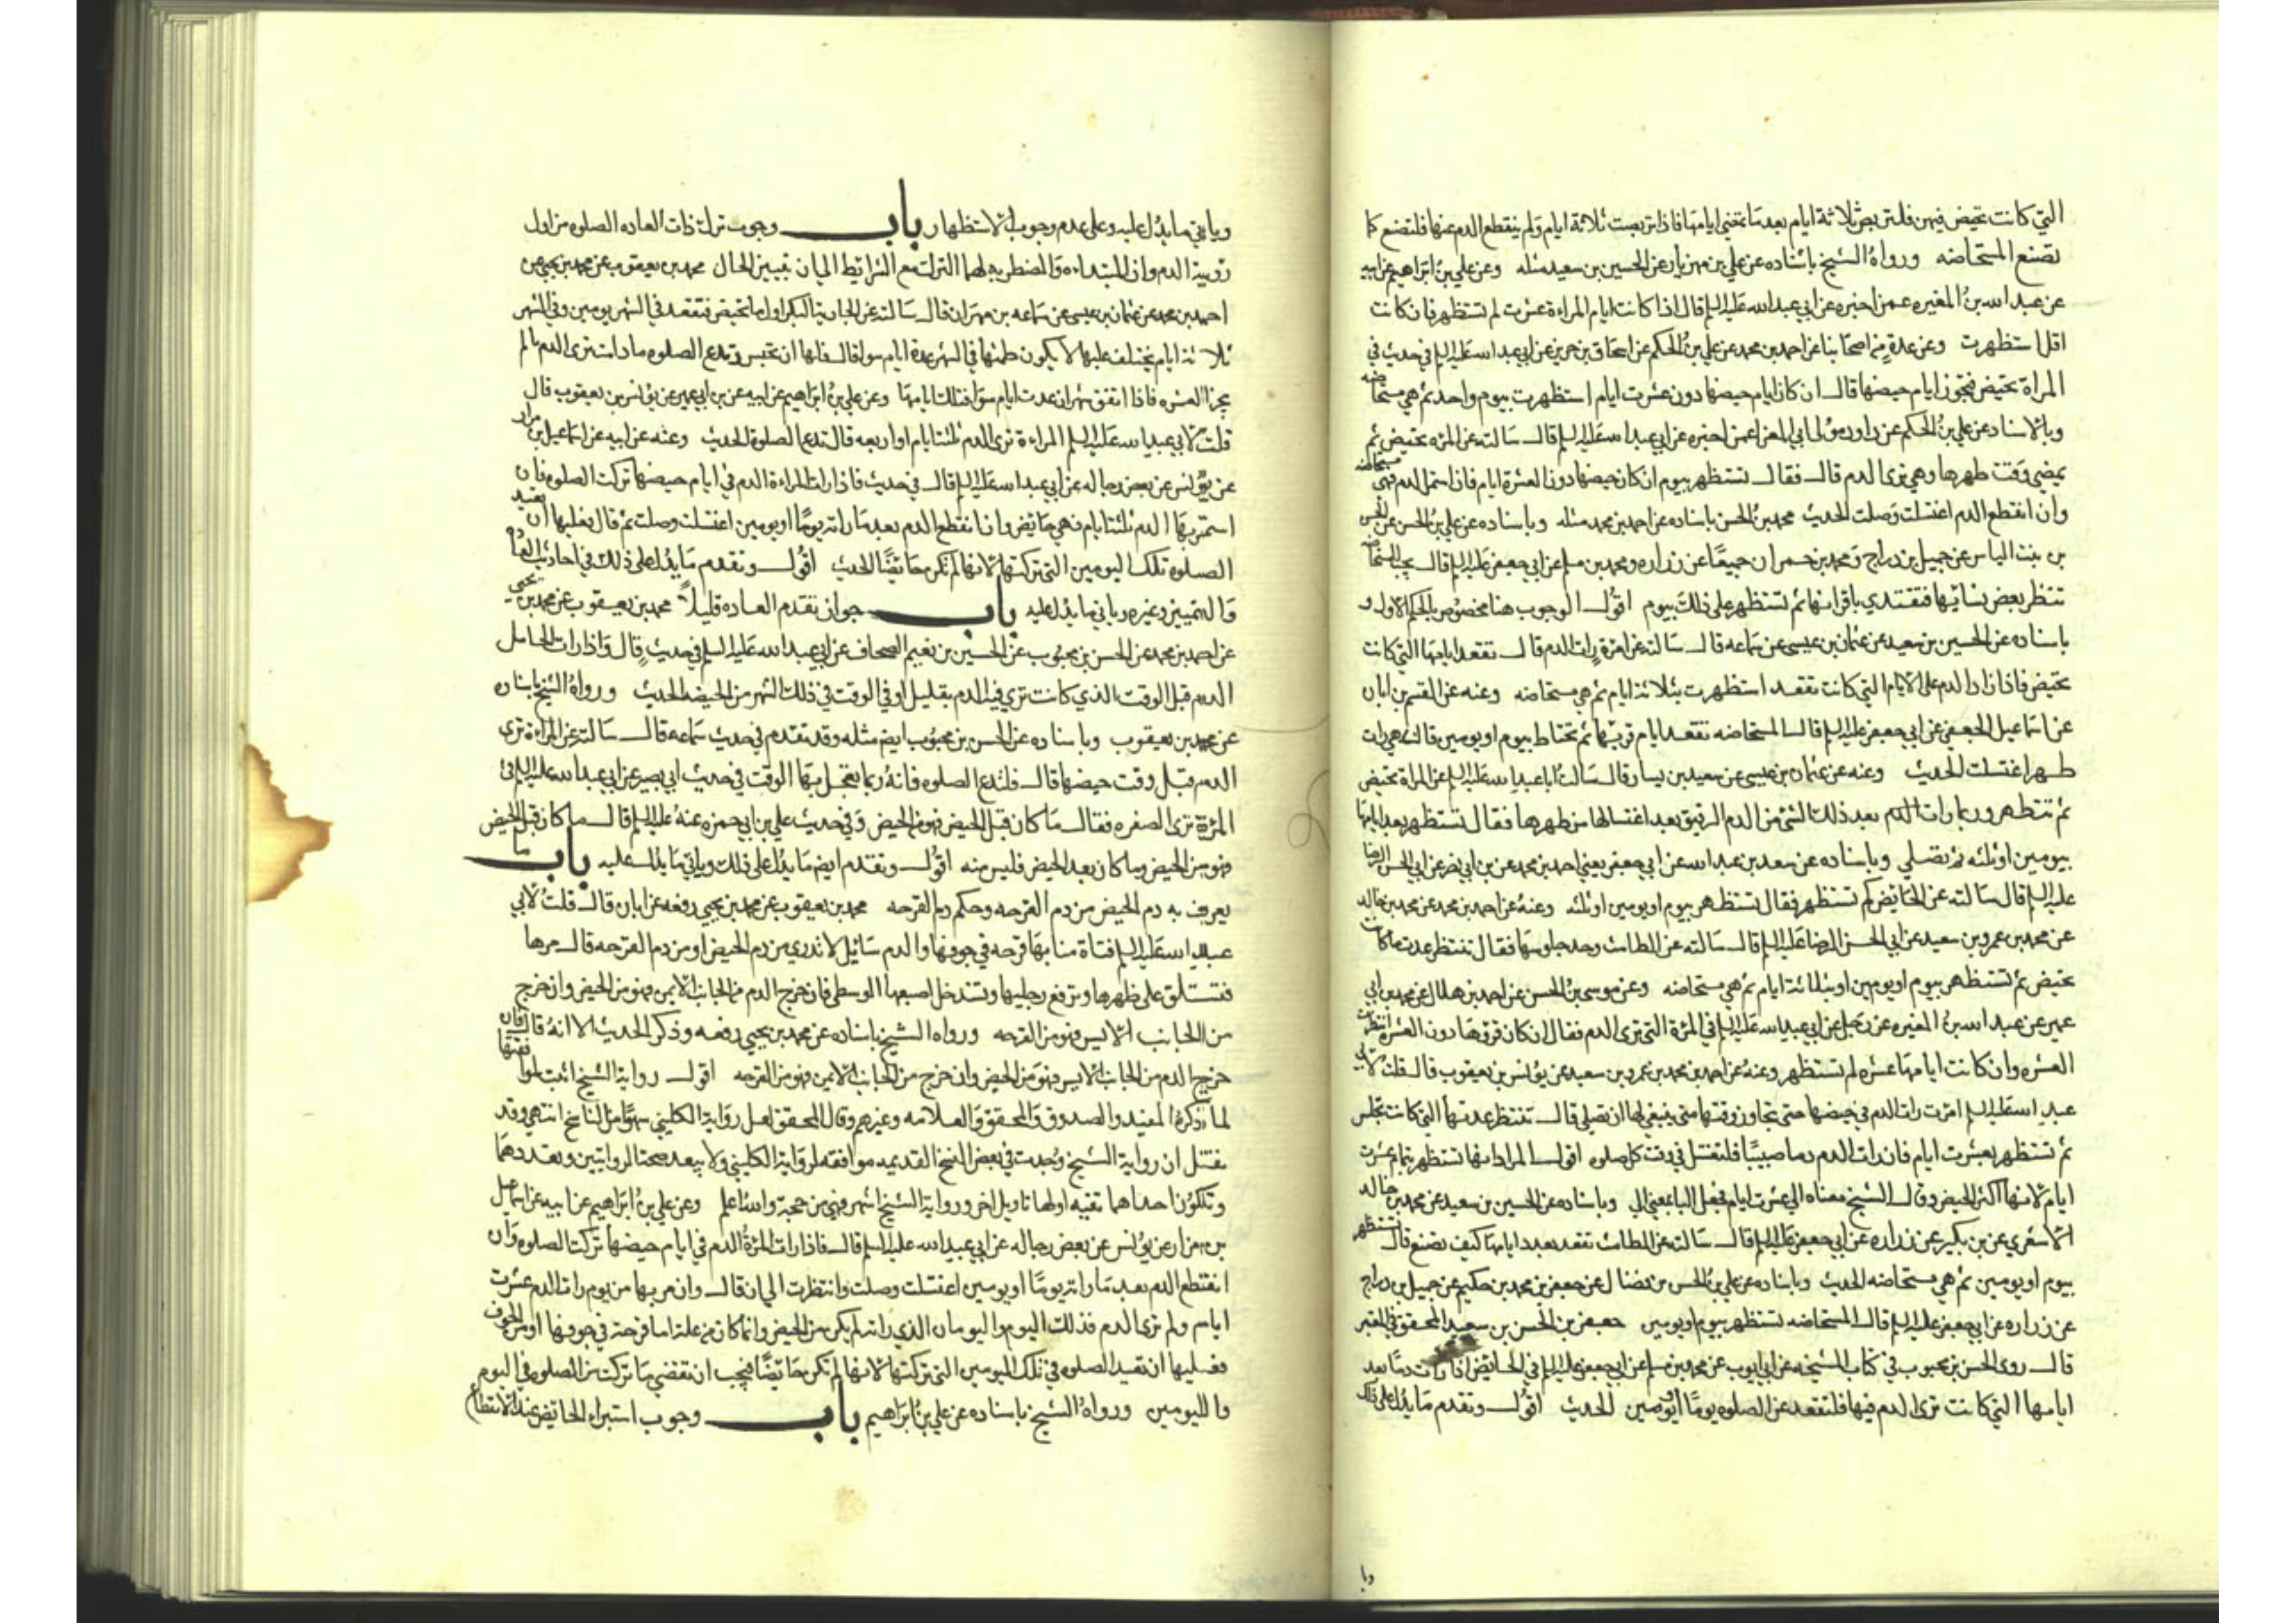 التي كانت تحيض فيهن فلتربص ثلاثة ايام بعد ما تمضي ايامها فاذا تربصت ثلاثة ايام ولم ينقطع الدم عنها فلتصنع كما
تصنع المستحاضه ورواه الشيخ باسناده عن علي بن مهزيار عن الحسين بن سعيد مثله وعن علي بن ابراهيم عن ابيه
عن عبد الله بن المغيره عمن اخبره عن ابي عبد الله عليه السلم قال اذا كانت ايام المراءة عشرت لم تستظهر فان كانت
اقل استظهرت وعن عدة من اصحابنا عن احمد بن محمد عن علي بن الحكم عن اسحاق بن جرير عن ابي عبد الله عليه السلم في حديث في
المراة تحيض فتجوز ايام حيضها قال ان كان ايام حيضها دون عشرت ايام استظهرت بيوم واحد ثم هي مستحاضه
وبالاسناد عن علي بن الحكم عن داود مولى ابي المعزا عمن اخبره عن ابي عبد الله عليه السلم قال سالته عن المرءه تحيض ثم
يمضي وقت طهرها وهي ترى الدم قال فقال تستظهر بيوم ان كان حيضها دون العشرة ايام فان استمر الدم فهي مستحاضه
وان انقطع الدم اغتسلت وصلت الحديث محمد بن الحسن باسناده عن احمد بن محمد مثله وباسناده عن علي بن الحسن عن الحسن
بن بنت الياس عن جميل بن دراج ومحمد بن حمران جميعًا عن زراره ومحمد بن مسلم عن ابي جعفر عليه السلم قال يجب للمستحاضه
تنظر بعض نسائها فتقتدي باقرائها ثم تستظهر على ذلك بيوم اقول الوجوب هنا مخصوص بالحكم الاول و
باسناده عن الحسين بن سعيد عن عثمان بن عيسى عن سماعه قال سالته عن امرءة رات الدم قال تقعد ايامها التي كانت
تحيض فاذا زاد الدم على الايام التي كانت تقعد استظهرت بثلاثة ايام ثم هي مستحاضه وعنه عن القسم بن ابان
عن اسماعيل الجعفي عن ابي جعفر عليه السلم قال المستحاضه تقعد ايام قرئها ثم تحتاط بيوم او يومين فان هي رات
طهرا اغتسلت الحديث وعنه عن عثمان بن عيسى عن سعيد بن يسار قال سالت ابا عبد الله عليه السلم عن المراة تحيض
ثم تطهر وربما رات الدم بعد ذلك الشئ من الدم الرقيق بعد اغتسالها من طهرها فقال تستظهر بعد ايامها
بيومين او ثلثه ثم تصلي وباسناده عن سعد بن عبد الله عن ابي جعفر يعني احمد بن محمد عن بن ابي نصر عن ابي الحسن الرضا
عليه السلم قال سالته عن الحائض كم تستظهر فقال تستظهر بيوم او يومين او ثلثه وعنه عن احمد بن محمد عن محمد بن خالد
عن محمد بن عمرو بن سعيد عن ابي الحسن الرضا عليه السلم قال سالته عن الطامث وحد جلوسها فقال تنتظر عدت ما كانت
تحيض ثم تستظهر بيوم او يومين او بثلاثة ايام ثم هي مستحاضه وعن موسى بن الحسن عن احمد بن هلال عن محمد بن ابي
عمير عن عبد الله بن المغيره عن رجل عن ابي عبد الله عليه السلم في المرءة التي ترى الدم فقال ان كان قروها دون العشرة انتظرت
العشره وان كانت ايامها عشره لم تستظهر وعنه عن احمد بن محمد بن عمرو بن سعيد عن يونس بن يعقوب قال قلت لابي
عبد الله عليه السلم امرءت رات الدم في حيضها حتى تجاوز وقتها متى ينبغي لها ان تصلي قال تنتظر عدتها التي كانت تجلس
ثم تستظهر بعشرت ايام فان رات الدم دما صبيبًا فلتغتسل في وقت كل صلوه اقول المراد انها تستظهر بتمام عشرت
ايام لانها اكثر الحيض وقال الشيخ معناه الى عشرت ايام فجعل الباء بمعني الى وباسناده عن الحسين بن سعيد عن محمد بن خالد
الاشعري عن بن بكير عن زراره عن ابي جعفر عليه السلم قال سالته عن الطامث تقعد بعدد ايامها كيف تصنع قال تستظهر
بيوم او يومين ثم هي مستحاضه الحديث وباسناده عن علي بن الحسن بن فضال عن جعفر بن محمد بن حكيم عن جميل بن دراج
عن زراره عن ابي جعفر عليه السلم قال المستحاضه تستظهر بيوم او يومين جعفر بن الحسن بن سعيد المحقق في المعتبر
قال روى الحسن بن محبوب في كتاب المشيخه عن ابي ايوب عن محمد بن مسلم عن ابي جعفر عليه السلم في الحائض اذا رات دمًا بعد
ايامها التي كانت ترى الدم فيها فلتقعد عن الصلوه يومًا او يومين الحديث اقول وتقدم ما يدل على ذلك
ويا
وياتي ما يدل عليه وعلى عدم وجوب الاستظهار باب وجوب ترك ذات العاده الصلوه من اول
رؤيه الدم وان المبتداءه والمضطربه لهما الترك مع الشرائط الى ان تبين الحال محمد بن يعقوب عن محمد بن يحيى عن
احمد بن محمد عن عثمان بن عيسى عن سماعه بن مهران قال سالته عن الجارية البكر اول ما تحيض فتقعد في الشهر يومين وفي الشهر
ثلاثة ايام يختلف عليها لا يكون طمثها في الشهر عدة ايام سوا قال فلها ان تجلس وتدع الصلوه ما دامت ترى الدم ما لم
يجز العشره فاذا اتفق شهران عدت ايام سوا فتلك ايامها وعن علي بن ابراهيم عن ابيه عن بن ابي عمير عن يونس بن يعقوب قال
قلت لابي عبد الله عليه السلم المراءة ترى الدم ثلثة ايام او اربعه قال تدع الصلوة الحديث وعنه عن ابيه عن اسماعيل بن مرار
عن يونس عن بعض رجاله عن ابي عبد الله عليه السلم قال في حديث فاذا رات المراءة الدم في ايام حيضها تركت الصلوه فان
استمر بها الدم ثلثة ايام فهي حائض وان انقطع الدم بعد ما راته يومًا او يومين اغتسلت وصلت ثم قال فعليها ان تعيد
الصلوه تلك اليومين التي تركتها لانها لم تكن حائضًا الحديث اقول وتقدم ما يدل على ذلك في احاديث العاده
والتمييز وغيره وياتي ما يدل عليه باب جواز تقدم العاده قليلاً محمد بن يعقوب عن محمد بن يحيى
عن احمد بن محمد عن الحسن بن محبوب عن الحسين بن نعيم الصحاف عن ابي عبد الله عليه السلم في حديث قال واذا رات الحامل
الدم قبل الوقت الذي كانت ترى فيه الدم بقليل او في الوقت في ذلك الشهر من الحيضه الحديث ورواه الشيخ باسناده
عن محمد بن يعقوب وباسناده عن الحسن بن محبوب ايضم مثله وقد تقدم في حديث سماعه قال سالته عن المراءة ترى
الدم قبل وقت حيضها قال فلتدع الصلوه فانه ربما تعجل بها الوقت في حديث ابي بصير عن ابي عبد الله عليه السلم في
المرءة ترى الصفره فقال ما كان قبل الحيض فهو من الحيض وفي حديث علي بن ابي حمزه عنه عليه السلم قال ما كان قبل الحيض
فهو من الحيض وما كان بعد الحيض فليس منه اقول وتقدم ايضم ما يدل على ذلك وياتي ما يدل عليه باب ما
يعرف به دم الحيض من دم القرحه وحكم دم القرحه محمد بن يعقوب عن محمد بن يحيى رفعه عن ابان قال قلت لابي
عبد الله عليه السلم فتاة منا بها قرحه في جوفها والدم سائل لا تدري من دم الحيض او من دم القرحه قال مرها
فتستلق على ظهرها وترفع رجليها وتستدخل اصبعها الوسطى فان خرج الدم من الجانب الايمن فهو من الحيض وان خرج
من الجانب الايسر فهو من القرحه ورواه الشيخ باسناده عن محمد بن يحيى رفعه وذكر الحديث الا انه قال فان
خرج الدم من الجانب الايسر فهو من الحيض وان خرج من الجانب الايمن فهو من القرحه اقول رواية الشيخ اثبت لموافقتها
لما ذكره المفيد والصدوق والمحقق والعلامه وغيرهم وقال المحقق لعل رواية الكليني سهوًا من الناسخ انتهى وقد
نقل ان رواية الشيخ وجدت في بعض النسخ القديمه موافقه لرواية الكليني ولا يبعد صحة الروايتين وتعددهما
وتكون احداهما تقيه اولها تاويل اخر ورواية الشيخ اشهر فهي من حجة والله اعلم وعن علي بن ابراهيم عن ابيه عن اسماعيل
بن مرار عن يونس عن بعض رجاله عن ابي عبد الله عليه السلم قال فاذا رات المرءة الدم في ايام حيضها تركت الصلوه وان
انقطع الدم بعد ما راته يومًا او يومين اغتسلت وصلت وانتظرت الى ان قال وان مر بها من يوم رات الدم عشرت
ايام ولم ترى الدم فذلك اليوم واليومان الذي راته لم يكن من الحيض وانما كان من علة اما قرحة في جوفها او من الجوف
فعليها ان تعيد الصلوه في تلك اليومين التي تركتها لانها لم تكن حائضًا فيجب ان تقضي ما تركت من الصلوه في اليوم
واليومين ورواه الشيخ باسناده عن علي بن ابراهيم باب وجوب استبراء الحائض عند الانقطاع